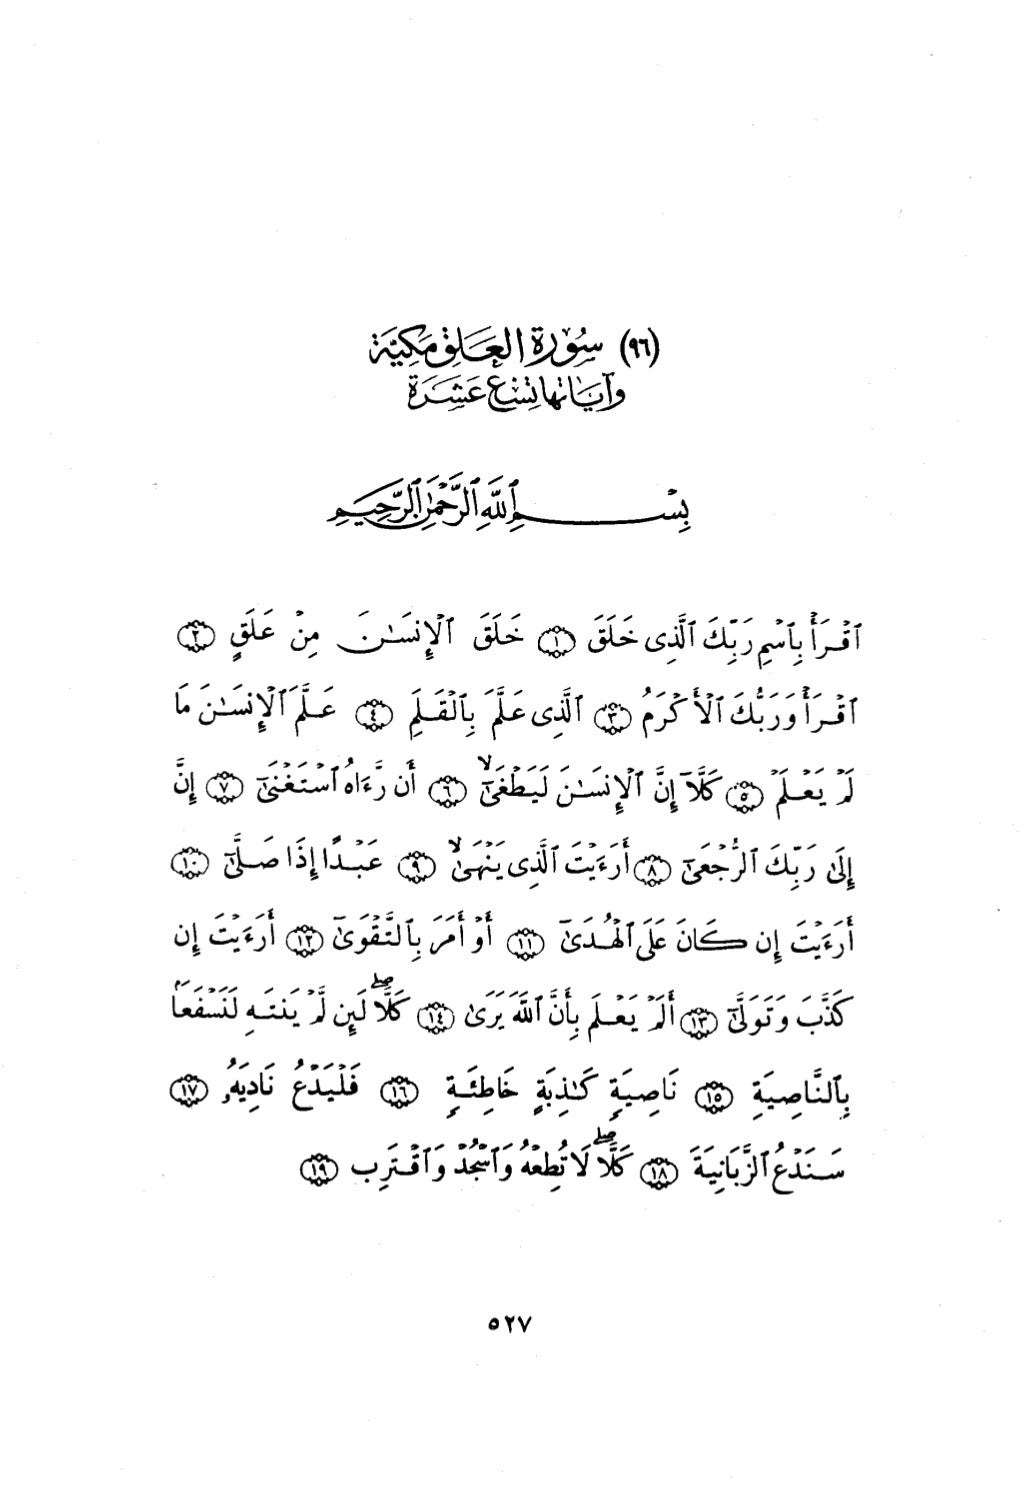 (٩٦) سُورَةُ العَلَقِ مَكِيَّة
وَآيَاتُها تِسْع عَشَرَة
بِسْمِ ٱللَّهِ ٱلرَّحْمَٰنِ ٱلرَّحِيمِ
ٱقْرَأْ بِٱسْمِ رَبِّكَ ٱلَّذِى خَلَقَ ١ خَلَقَ ٱلْإِنسَٰنَ مِنْ عَلَقٍ ٢
ٱقْرَأْ وَرَبُّكَ ٱلْأَكْرَمُ ٣ ٱلَّذِى عَلَّمَ بِٱلْقَلَمِ ٤ عَلَّمَ ٱلْإِنسَٰنَ مَا
لَمْ يَعْلَمْ ٥ كَلَّآ إِنَّ ٱلْإِنسَٰنَ لَيَطْغَىٰٓ ۙ ٦ أَن رَّءَاهُ ٱسْتَغْنَىٰٓ ٧ إِنَّ
إِلَىٰ رَبِّكَ ٱلرُّجْعَىٰٓ ٨ أَرَءَيْتَ ٱلَّذِى يَنْهَىٰ ۙ ٩ عَبْدًا إِذَا صَلَّىٰٓ ١٠
أَرَءَيْتَ إِن كَانَ عَلَى ٱلْهُدَىٰٓ ١١ أَوْ أَمَرَ بِٱلتَّقْوَىٰٓ ١٢ أَرَءَيْتَ إِن
كَذَّبَ وَتَوَلَّىٰٓ ١٣ أَلَمْ يَعْلَم بِأَنَّ ٱللَّهَ يَرَىٰ ١٤ كَلَّا ۖ لَئِن لَّمْ يَنتَهِ لَنَسْفَعَۢا
بِٱلنَّاصِيَةِ ١٥ نَاصِيَةٍ كَٰذِبَةٍ خَاطِئَةٍ ١٦ فَلْيَدْعُ نَادِيَهُۥ ١٧
سَنَدْعُ ٱلزَّبَانِيَةَ ١٨ كَلَّا ۖ لَا تُطِعْهُ وَٱسْجُدْ وَٱقْتَرِب ١٩
٥٢٧